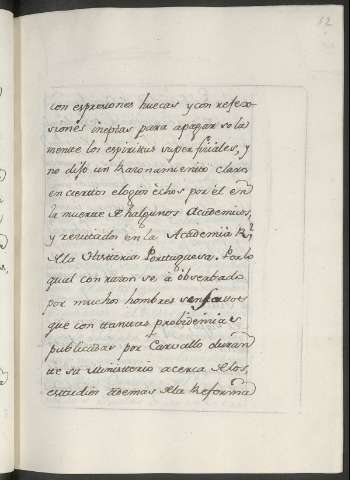 52
con espresiones huecas y con refex-
siones ineptas para apagar sola
mente los espiritus superficiales, y
no dijo un Razonamiento claro
en ciertos elogios èchos por èl en
la muerte de halgunos Academicos,
y recitados en la Academia Rl
de la Historia Portuguesa. Por lo
qual con razon se à observado
por muchos hombres sensatos
que con tantas probidemias
publicadas por Carvallo duran
te su Ministerio acerca de los
estudios ademas de la Reforma